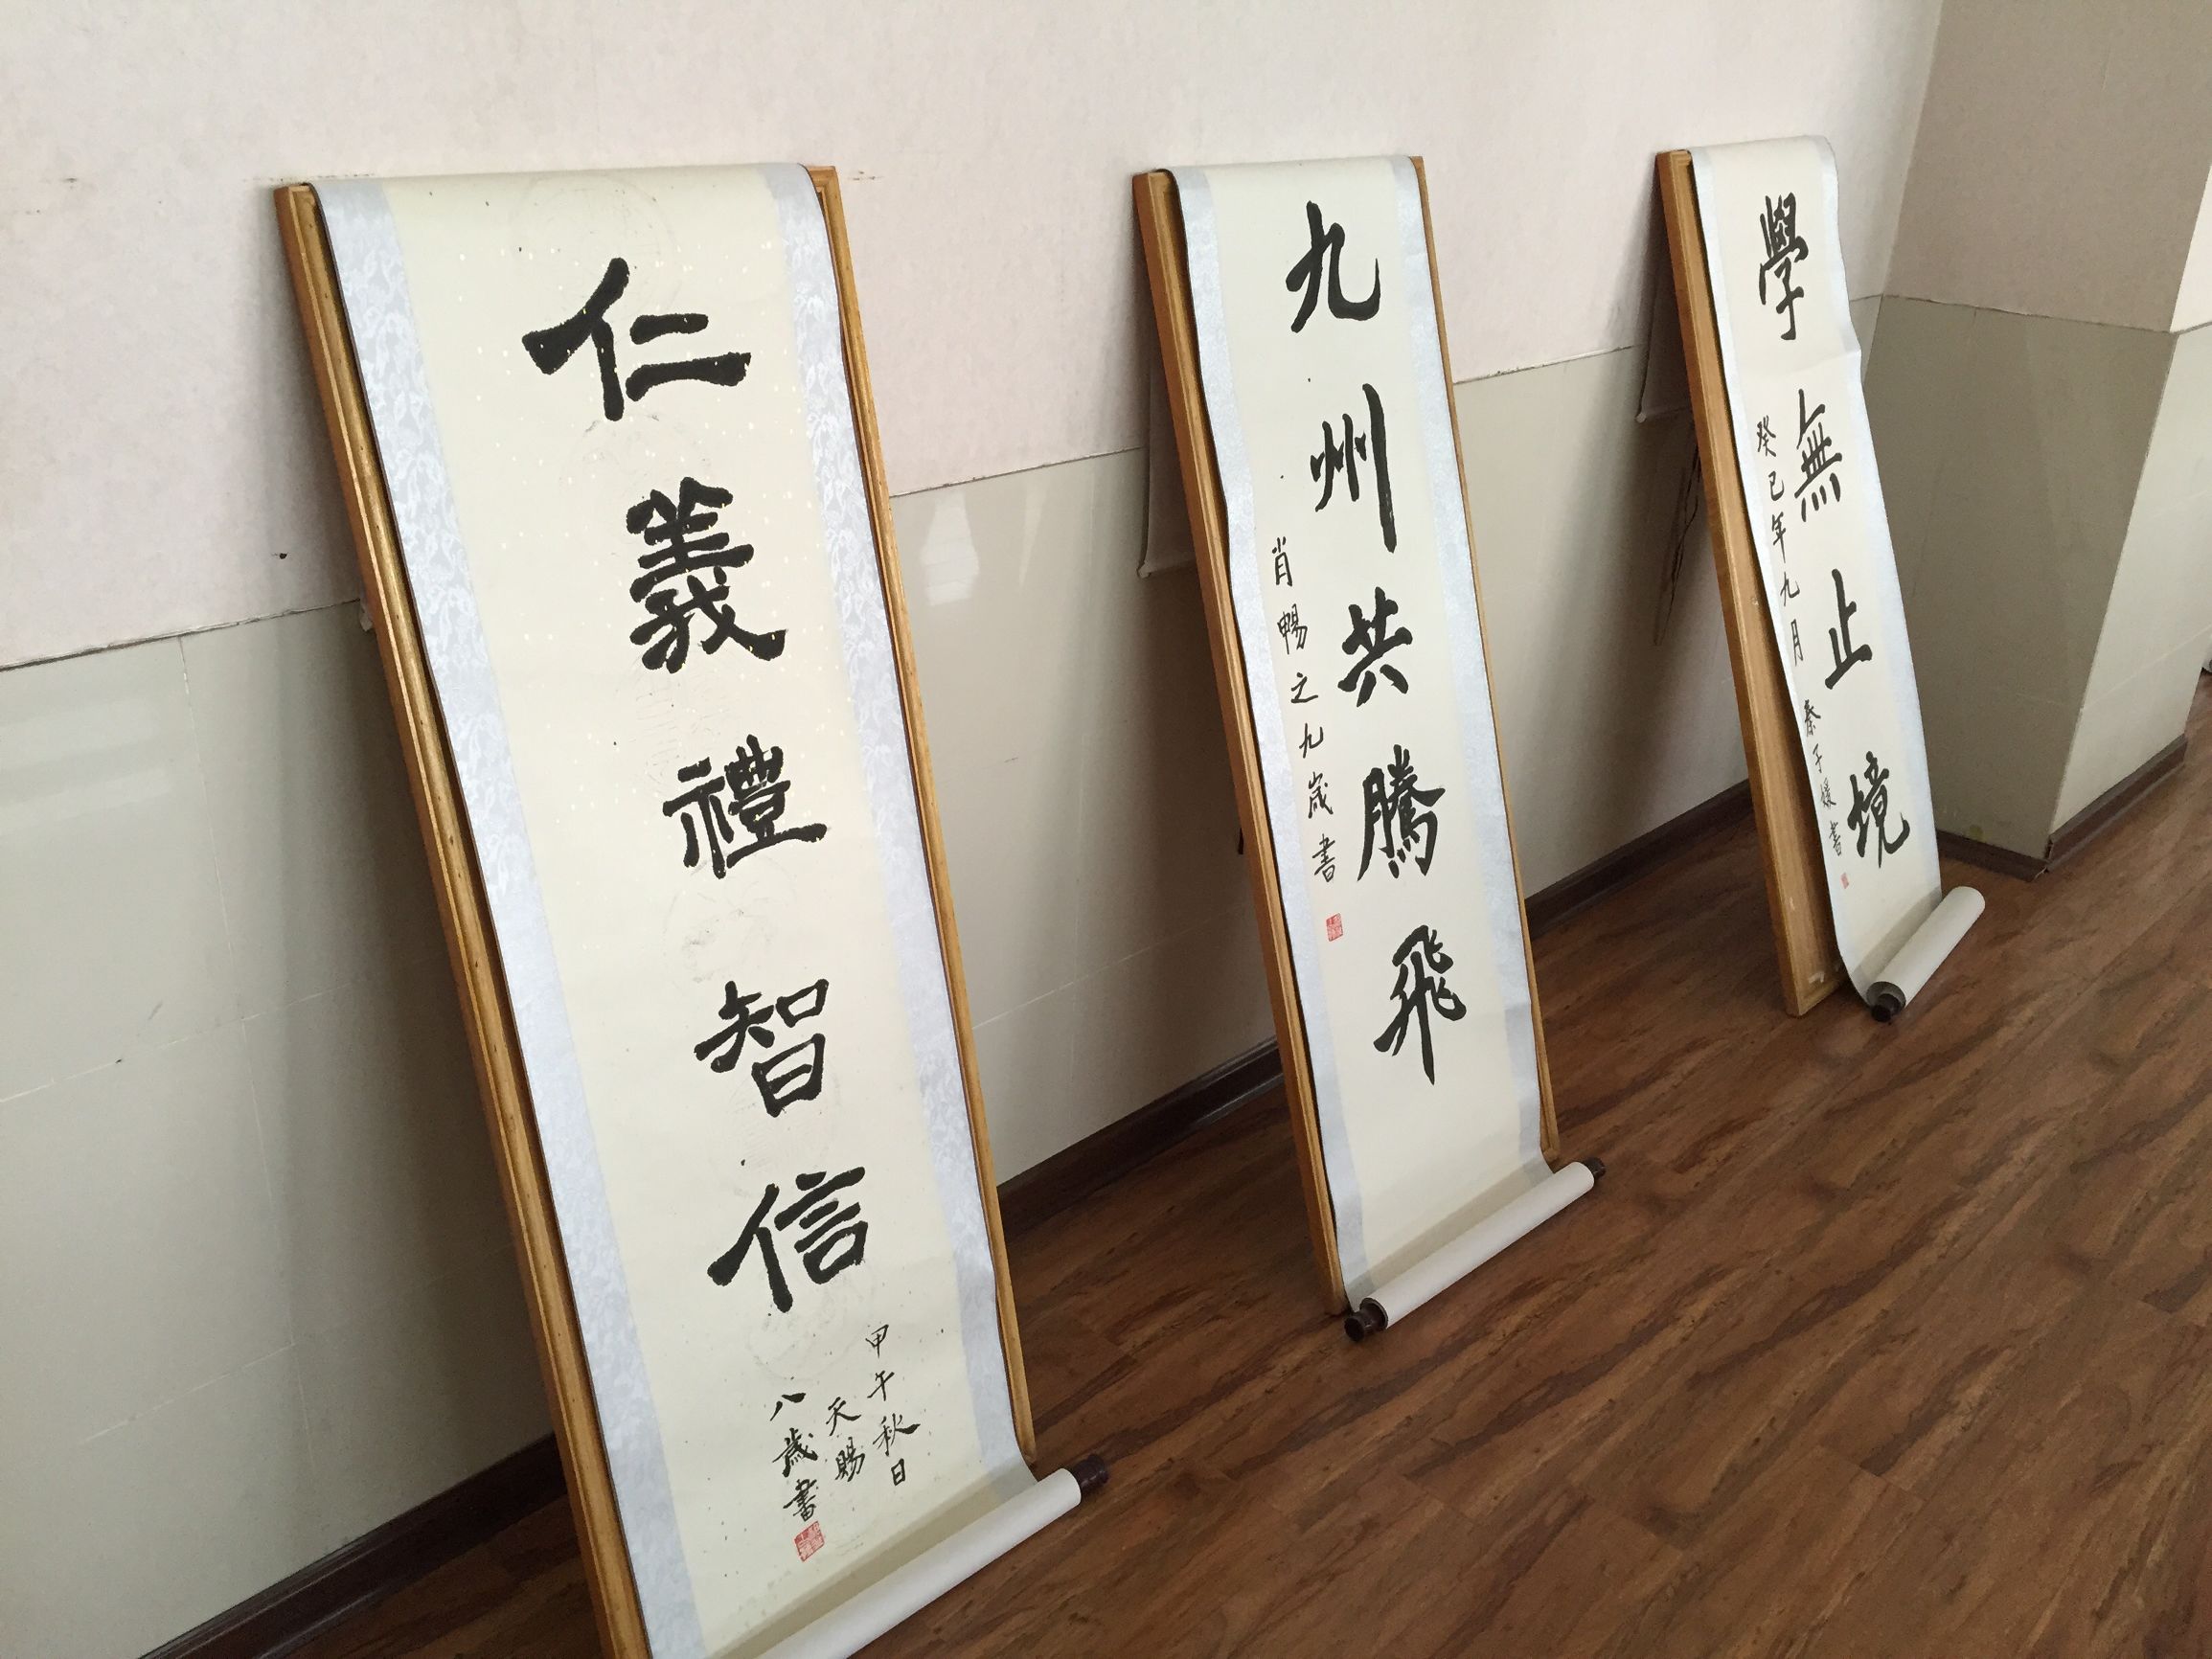 仁義禮智信
甲午秋日
天賜
八歲書
九州共騰飛
肖暢之九歲書
學無止境
癸巳年九月 秦子媛書